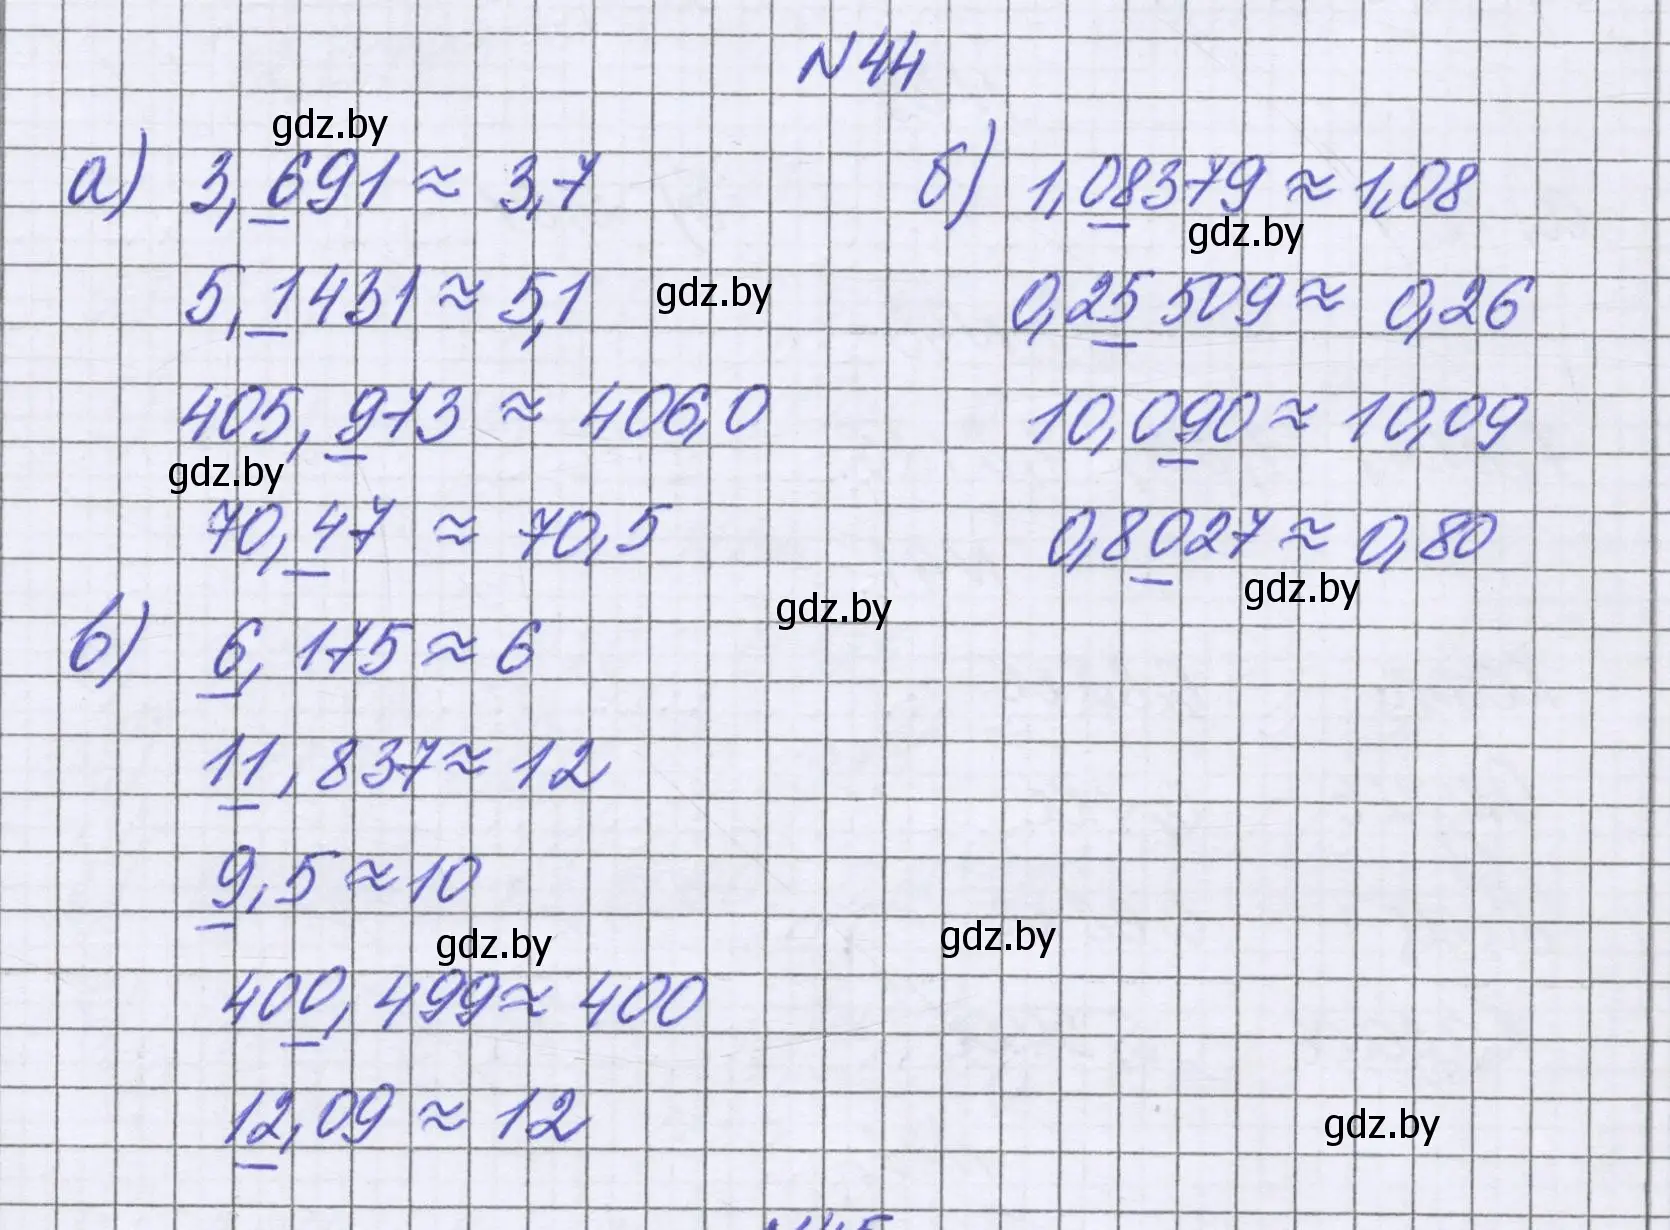 N44
gdz.by
а) 3,691 ≈ 3,7
б) 1,08379 ≈ 1,08
gdz.by
5,1431 ≈ 5,1
gdz.by
0,25509 ≈ 0,26
405,973 ≈ 406,0
10,090 ≈ 10,09
gdz.by
70,47 ≈ 70,5
0,8027 ≈ 0,80
gdz.by
gdz.by
в) 6,175 ≈ 6
11,837 ≈ 12
9,5 ≈ 10
gdz.by
gdz.by
400,499 ≈ 400
12,09 ≈ 12
gdz.by